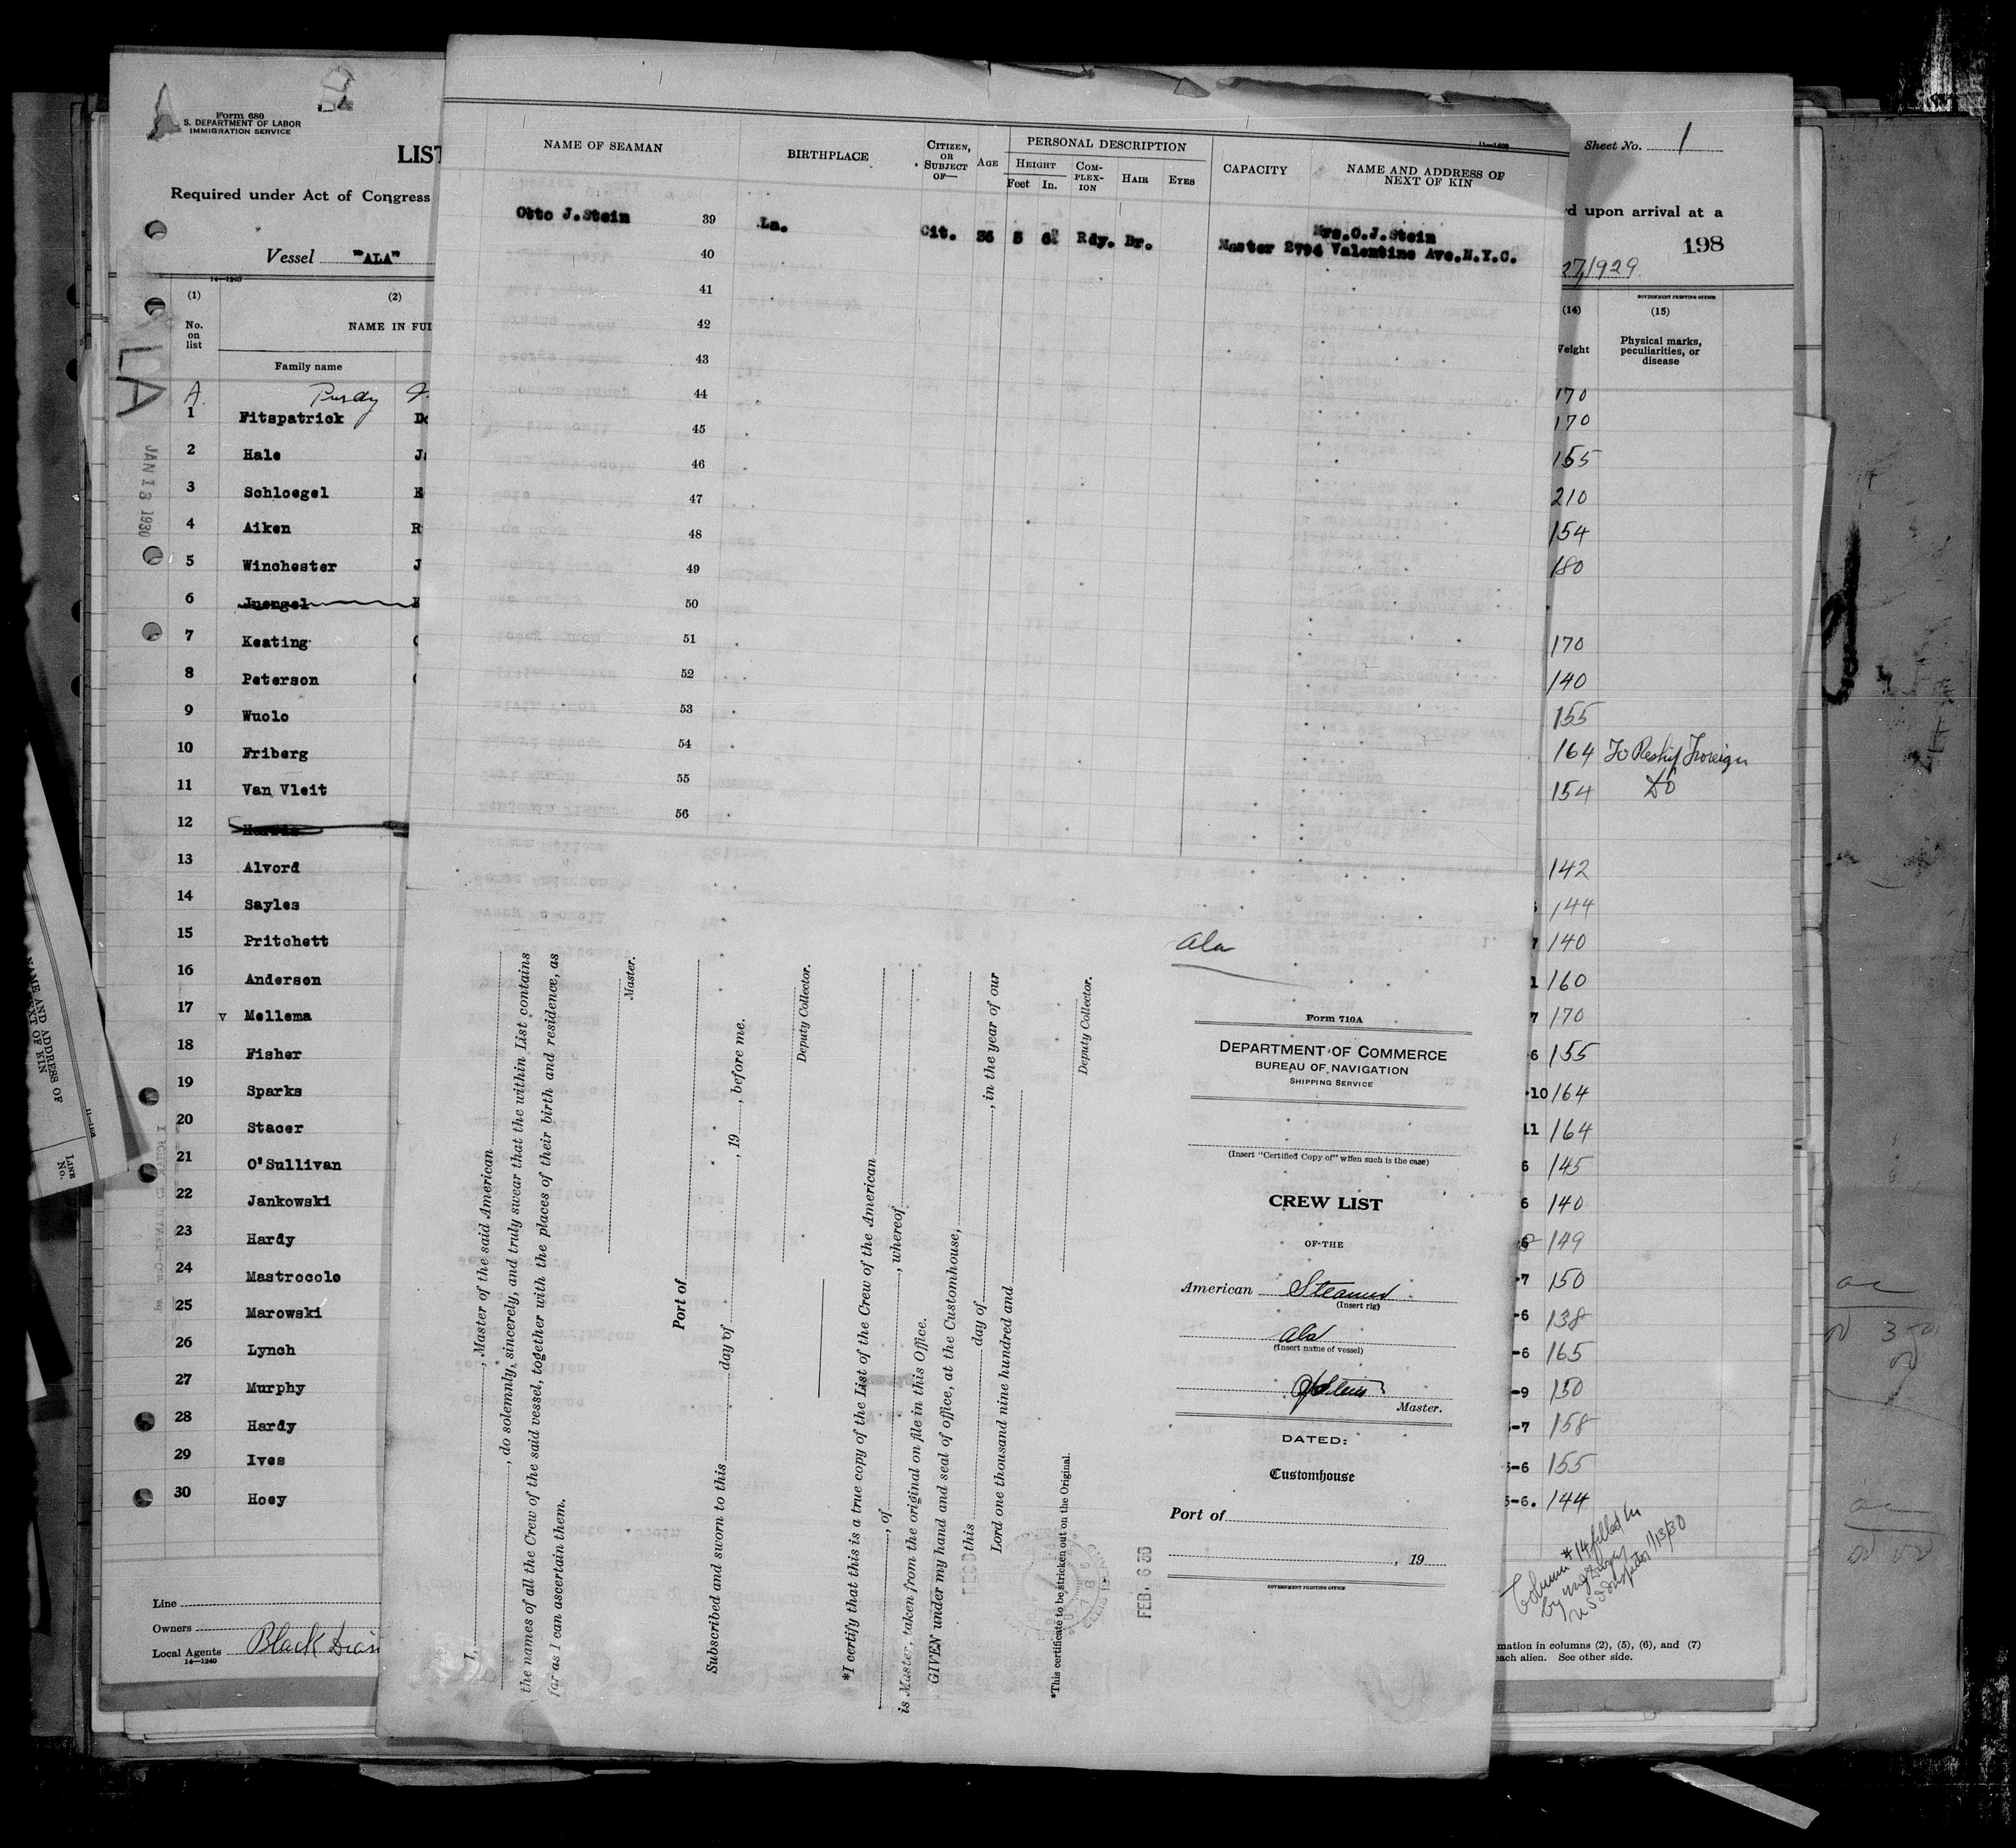 Form 680
S. DEPARTMENT OF LABOR
IMMIGRATION SERVICE
LIST
Required under Act of Congress
Vessel "ALA"
14—1240
(1)
(2)
No. on list
NAME IN FUL
Family name
A. Purdy
1 Fitspatrick
2 Hale
3 Schloegel
4 Aiken R
5 Winchester J
6 Juengel
7 Keating
8 Peterson
9 Wuolo
10 Friberg
11 Van Vleit
12
13 Alvord
14 Sayles
15 Pritchett
16 Anderson
17 v Mellema
18 Fisher
19 Sparks
20 Stacer
21 O'Sullivan
22 Jankowski
23 Hardy
24 Mastrocolo
25 Marowski
26 Lynch
27 Murphy
28 Hardy
29 Ives
30 Hoey
Line
Owners
Local Agents Black
14—1240
LA
JAN 13 1930
NAME AND ADDRESS OF
NEXT OF KIN
LINE
No.
NAME OF SEAMAN
BIRTHPLACE
CITIZEN, OR SUBJECT OF—
AGE
PERSONAL DESCRIPTION
HEIGHT
Feet In.
COMPLEX-ION
HAIR
EYES
CAPACITY
NAME AND ADDRESS OF
NEXT OF KIN
Otto J.Stein 39 La. Cit. 36 5 6 Rdy. Br.
Mrs.O.J.Stein
Master 2794 Valentine Ave.N.Y.C.
40
41
42
43
44
45
46
47
48
49
50
51
52
53
54
55
56
I, , Master of the said American
, do solemnly, sincerely, and truly swear that the within List contains
the names of all the Crew of the said vessel, together with the places of their birth and residence, as
far as I can ascertain them.
Master.
Port of
Subscribed and sworn to this day of , 19 , before me.
Deputy Collector.
*I certify that this is a true copy of the List of the Crew of the American
, of , whereof
is Master, taken from the original on file in this Office.
GIVEN under my hand and seal of office, at the Customhouse,
this day of , in the year of our
Lord one thousand nine hundred and
Deputy Collector.
*This certificate to be stricken out on the Original.
FEB. 6 30
Ala
Form 710A
DEPARTMENT OF COMMERCE
BUREAU OF NAVIGATION
SHIPPING SERVICE
(Insert "Certified Copy of" when such is the case)
CREW LIST
OF THE
American Steamer
(Insert rig)
Ala
(Insert name of vessel)
OJStein
Master.
DATED:
Customhouse
Port of
, 19
GOVERNMENT PRINTING OFFICE
Sheet No. 1
d upon arrival at a
198
27/1929
GOVERNMENT PRINTING OFFICE
(14)
(15)
Weight
Physical marks, peculiarities, or disease
170
170
155
210
154
180
170
140
155
164 To Reship Foreign
154 Do
142
144
7 140
1 160
7 170
6 155
-10 164
11 164
6 145
6 140
6 149
-7 150
-6 138
-6 165
-9 150
-7 158
5-6 155
5-6. 144
Column #14 filled in
by
U S Inspector 1/13/30
mation in columns (2), (5), (6), and (7)
each alien. See other side.